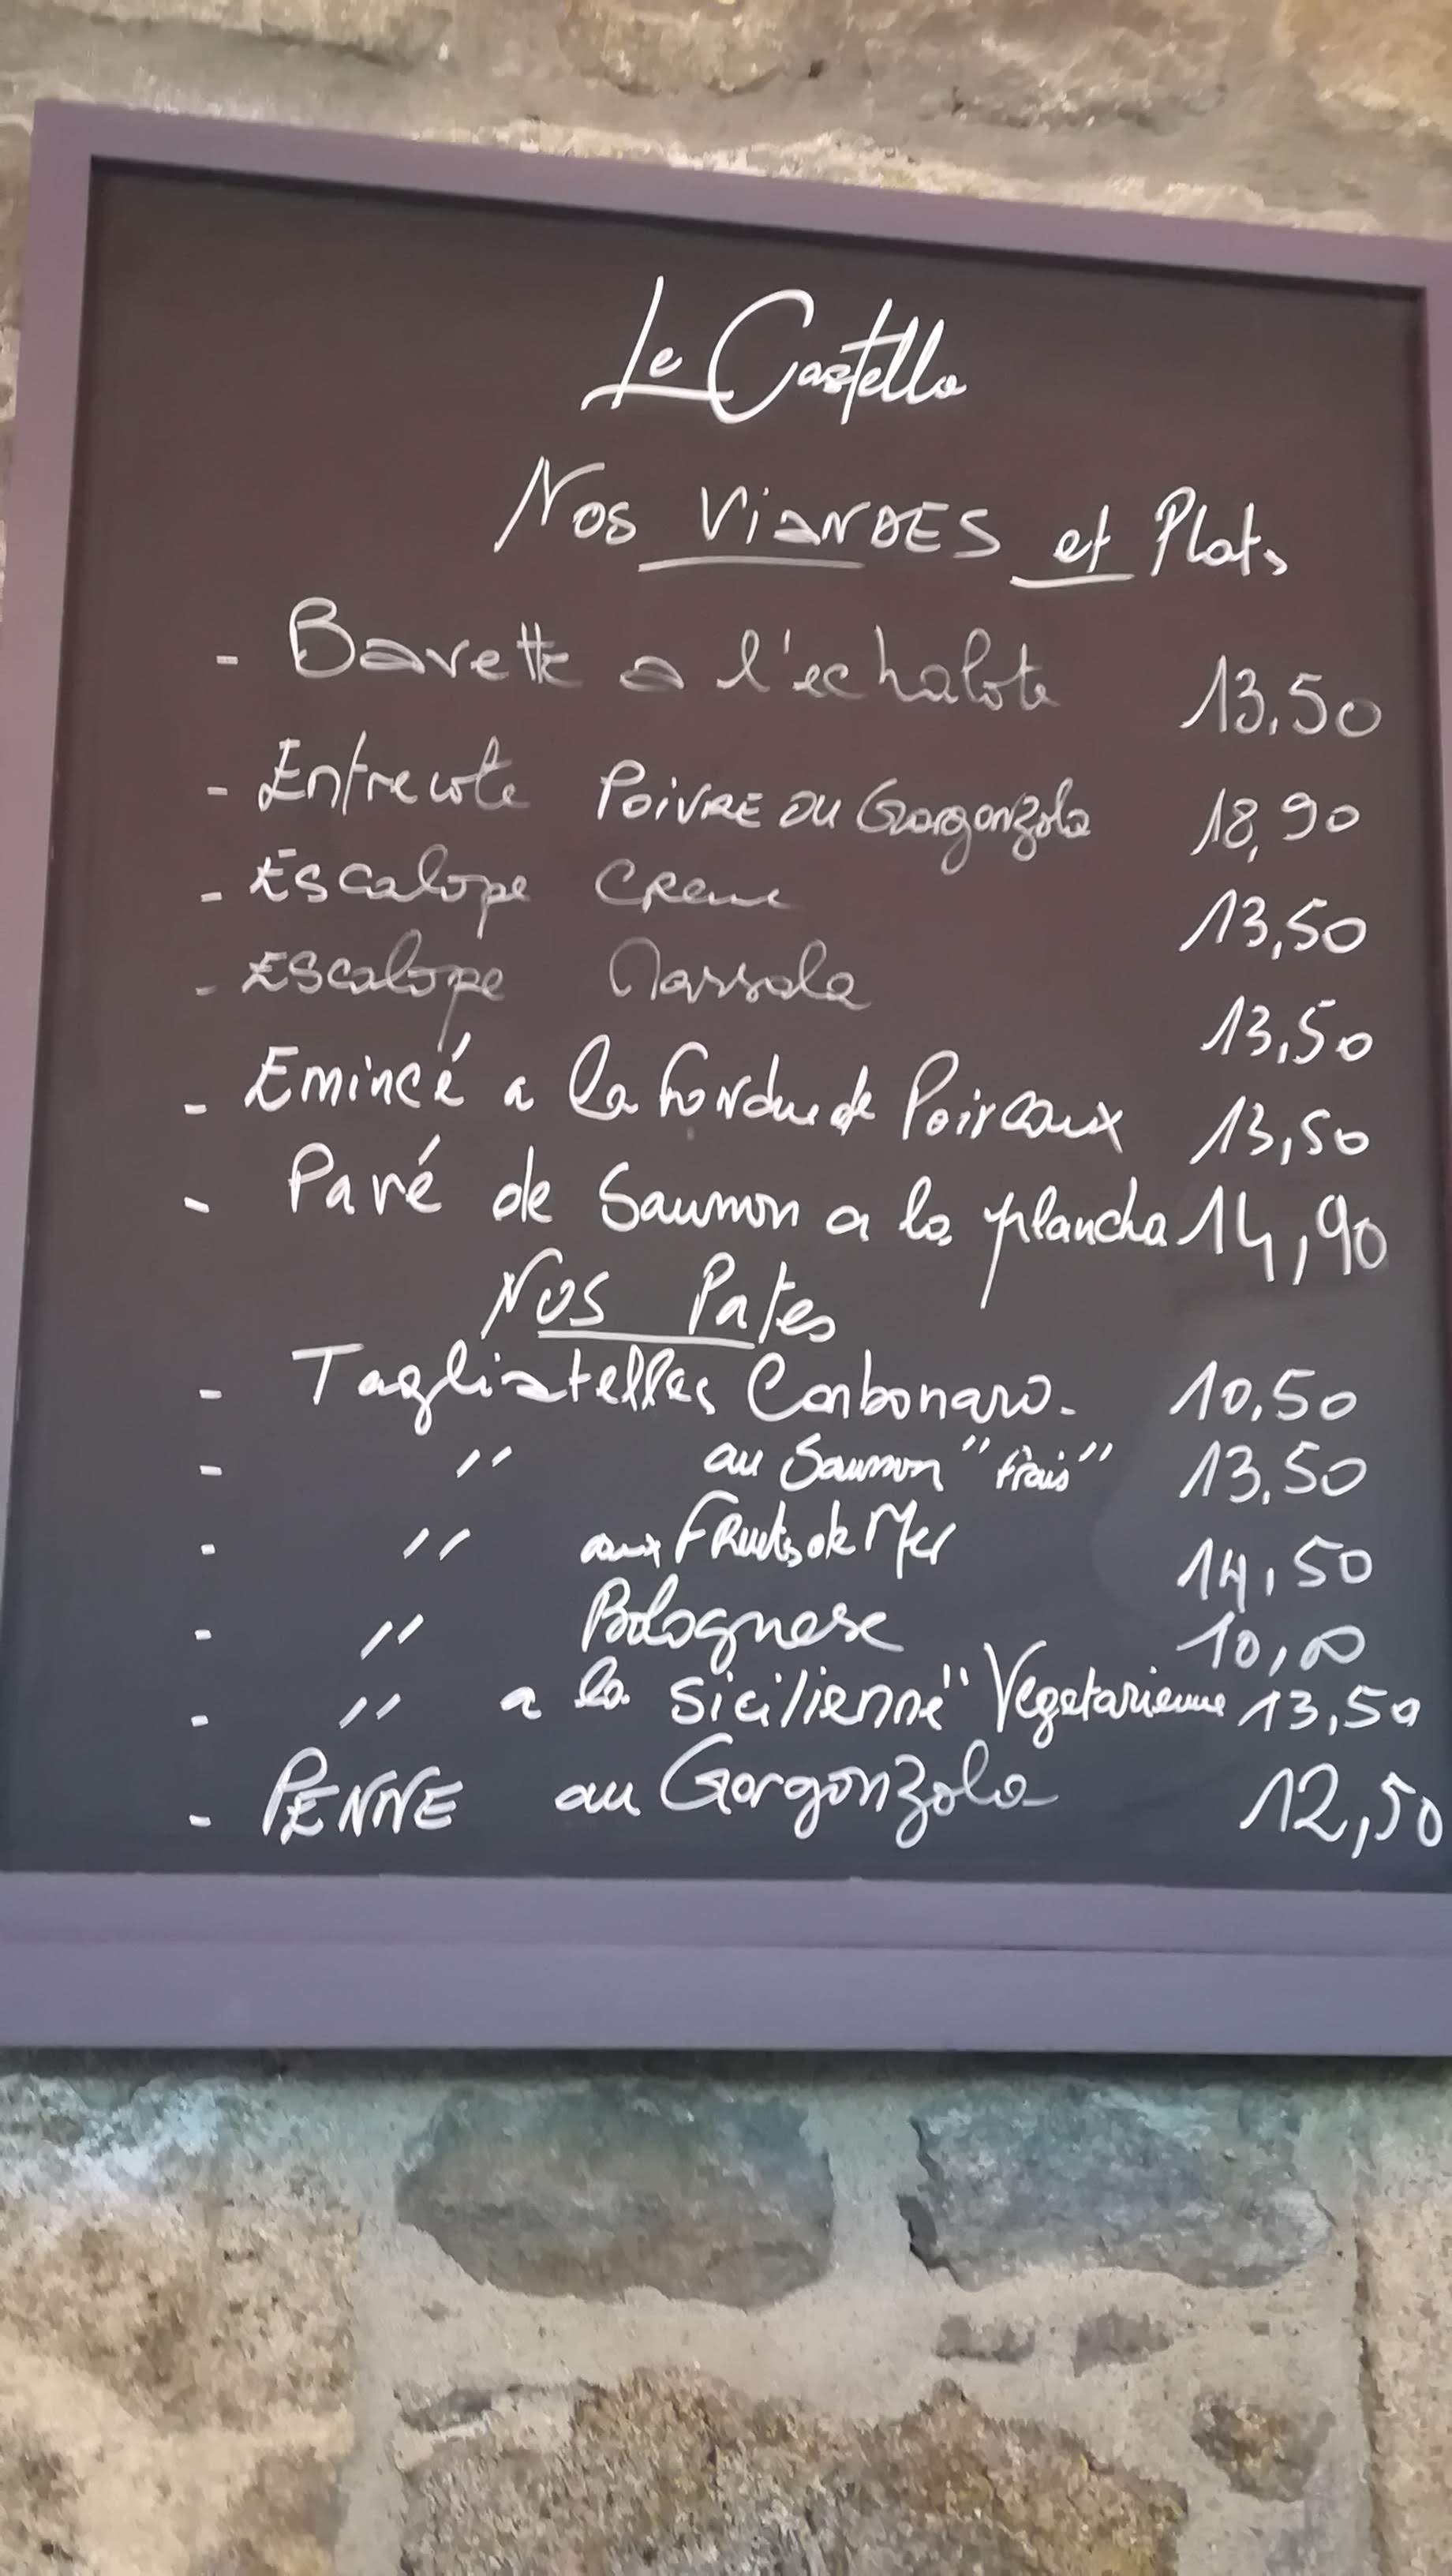 Le Castello
Nos ViANDES et Plats
- Bavette a l'echalote 13,50
- Entrecote PoiVRE OU Gorgonzola 18,90
- Escalope Creme 13,50
- Escalope Marsala 13,50
- Emincé a la fondue de Poireaux 13,50
- Pavé de Saumon a la plancha 14,90
Nos Pates
- Tagliatelles Carbonara. 10,50
- " au Saumon "frais" 13,50
- " aux FRuits de Mer 14,50
- " Bolognese 10,00
- " a la Sicilienne" Vegetarienne 13,50
- PENNE au Gorgonzola 12,50